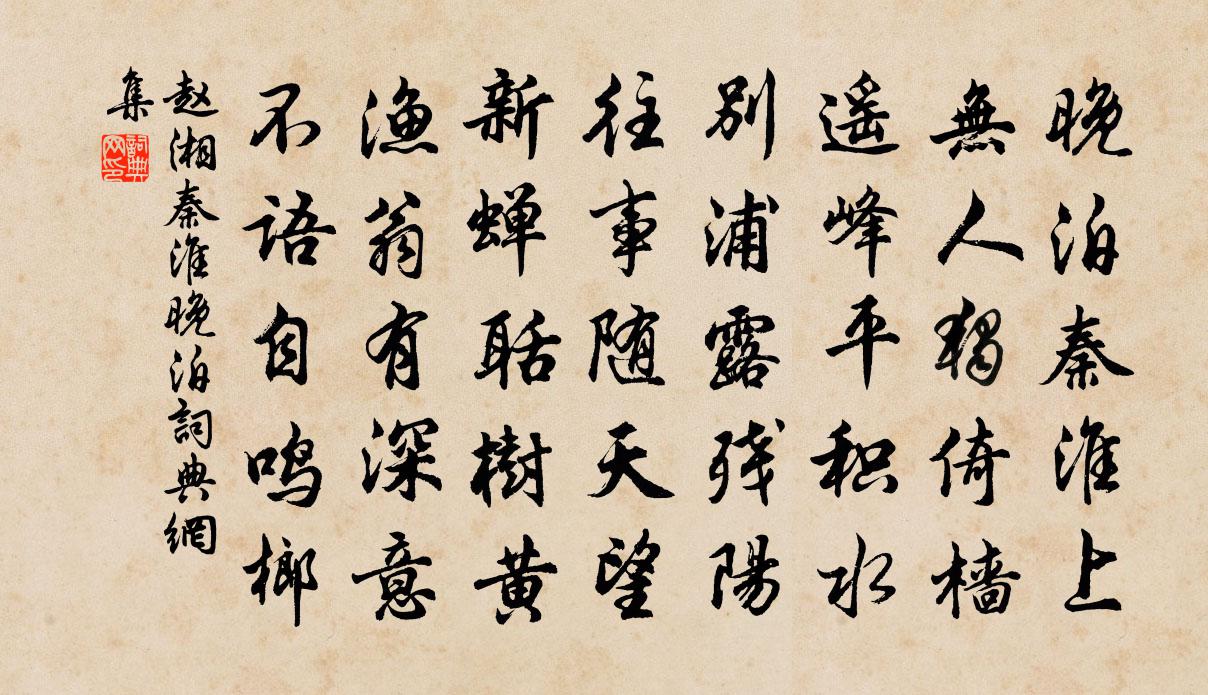 晚泊秦淮上
無人獨倚檣
遥峰平积水
別浦露残陽
往事随天望
新蝉聒樹黄
渔翁有深意
不語自鸣榔
赵湘秦淮晚泊詞典網
集
詞典
网印